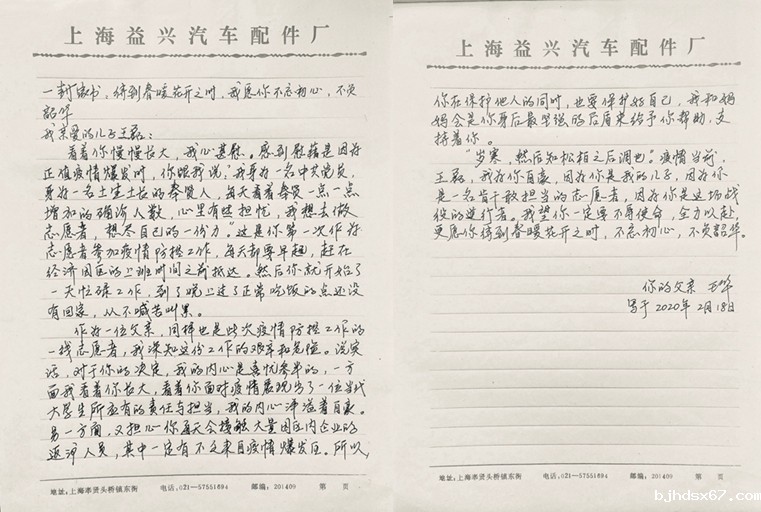 上海益兴汽车配件厂
一封家书，待到春暖花开之时，我愿你不忘初心，不负
韶华
我亲爱的儿子王磊：
看着你慢慢长大，我心甚慰。感到慰藉是因为
正值疫情爆发时，你跟我说，"我身为一名中共党员，
身为一名土生土长的奉贤人，每天看着奉贤一点一点
增加的确诊人数，心里有些担忧，我想去做
志愿者，想尽自己的一份力"这是你第一次作为
志愿者参加疫情防控工作，每天都要早起，赶在
经济园区的上班时间之前抵达。然后你就开始了
一天忙碌工作，到了晚上过了正常吃饭的点还没
有回家，从不喊苦叫累。
作为一位父亲，同样也是此次疫情防控工作的
一线志愿者，我深知这份工作的艰辛和危险。说实
话，对于你的决定，我的内心是喜忧参半的，一方
面我看着你长大，看着你面对疫情展现出了一位当代
大学生所应有的责任与担当，我的内心洋溢着自豪。
另一方面，又担心你每天会接触大量园区内企业的
返沪人员，其中一定有不少来自疫情爆发区。所以，
地址：上海奉贤头桥镇东街 电话：021—57551694 邮编：201409 第 页
上海益兴汽车配件厂
你在保护他人的同时，也要保护好自己，我和妈
妈会是你身后最坚强的后盾来给予你帮助，支
持着你。
"岁寒，然后知松柏之后凋也"。疫情当前，
王磊，我为你自豪，因为你是我的儿子，因为你
是一名肯干敢担当的志愿者，因为你是这场战
役的逆行者。我望你一定要不辱使命，全力以赴，
更愿你待到春暖花开之时，不忘初心，不负韶华。
你的父亲 王华
写于2020年2月18日
地址：上海奉贤头桥镇东街 电话：021—57551694 邮编：201409 第 页
bjhdsx67.com